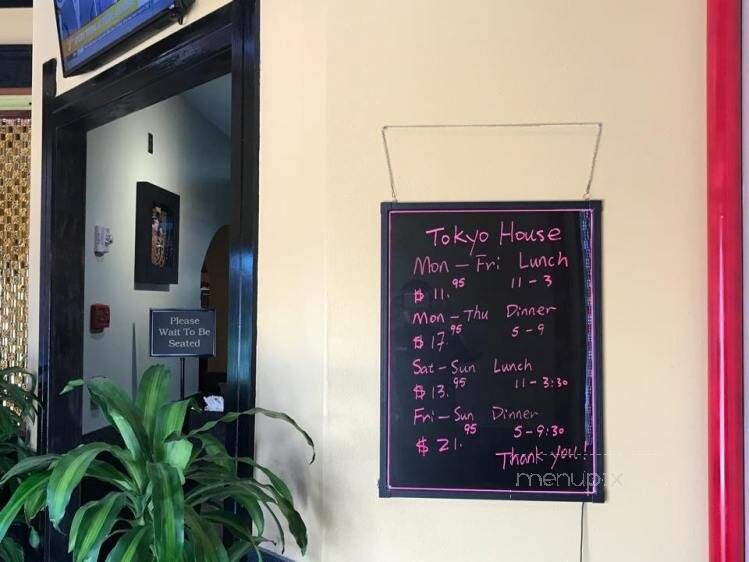 Please
Wait To Be
Seated
Tokyo House
Mon - Fri Lunch
$ 11.95 11 - 3
Mon - Thu Dinner
$ 17.95 5 - 9
Sat - Sun Lunch
$ 13.95 11 - 3:30
Fri - Sun Dinner
$ 21.95 5 - 9:30
Thank you!
menupix